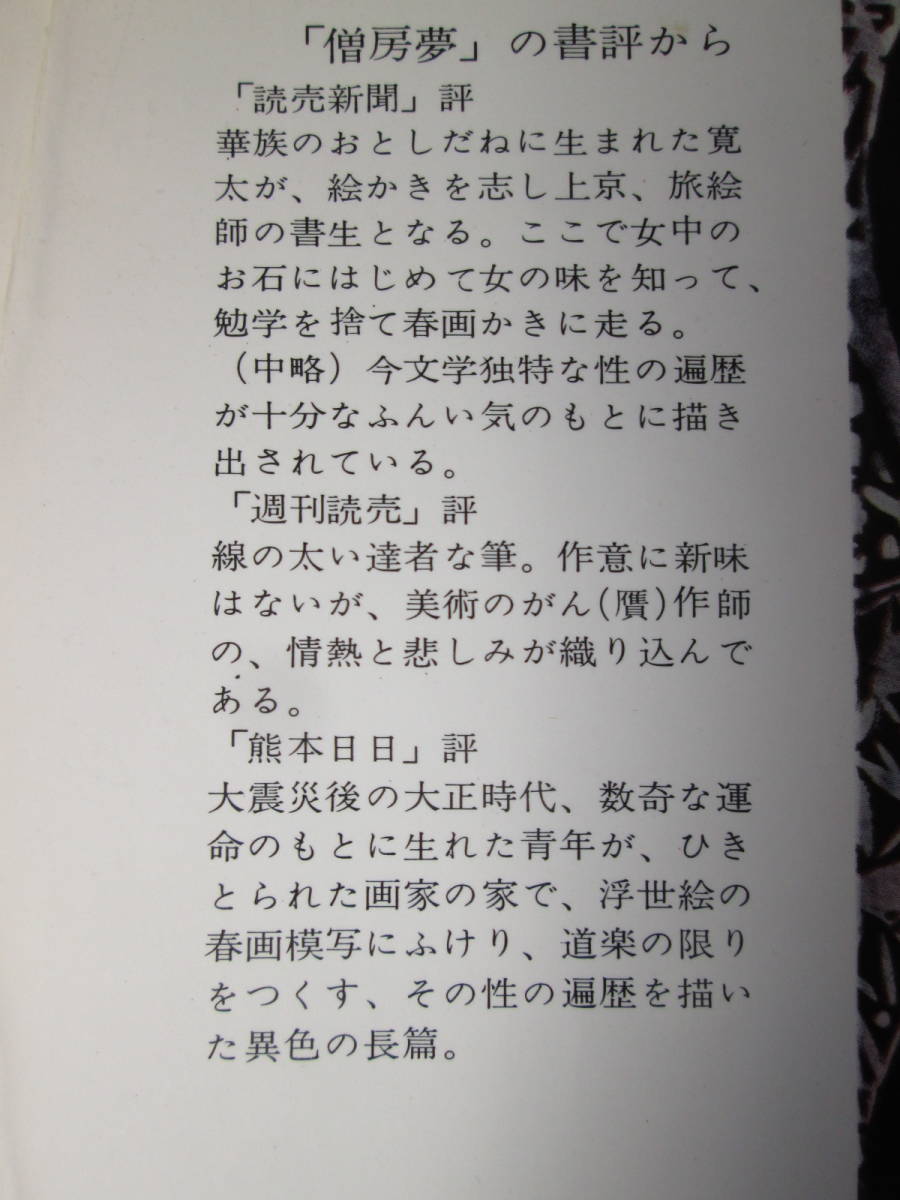 「僧房夢」の書評から
「読売新聞」評
華族のおとしだねに生まれた寛
太が、絵かきを志し上京、旅絵
師の書生となる。ここで女中の
お石にはじめて女の味を知って、
勉学を捨て春画かきに走る。
（中略）今文学独特な性の遍歴
が十分なふんい気のもとに描き
出されている。
「週刊読売」評
線の太い達者な筆。作意に新味
はないが、美術のがん(贋)作師
の、情熱と悲しみが織り込んで
ある。
「熊本日日」評
大震災後の大正時代、数奇な運
命のもとに生れた青年が、ひき
とられた画家の家で、浮世絵の
春画模写にふけり、道楽の限り
をつくす、その性の遍歴を描い
た異色の長篇。